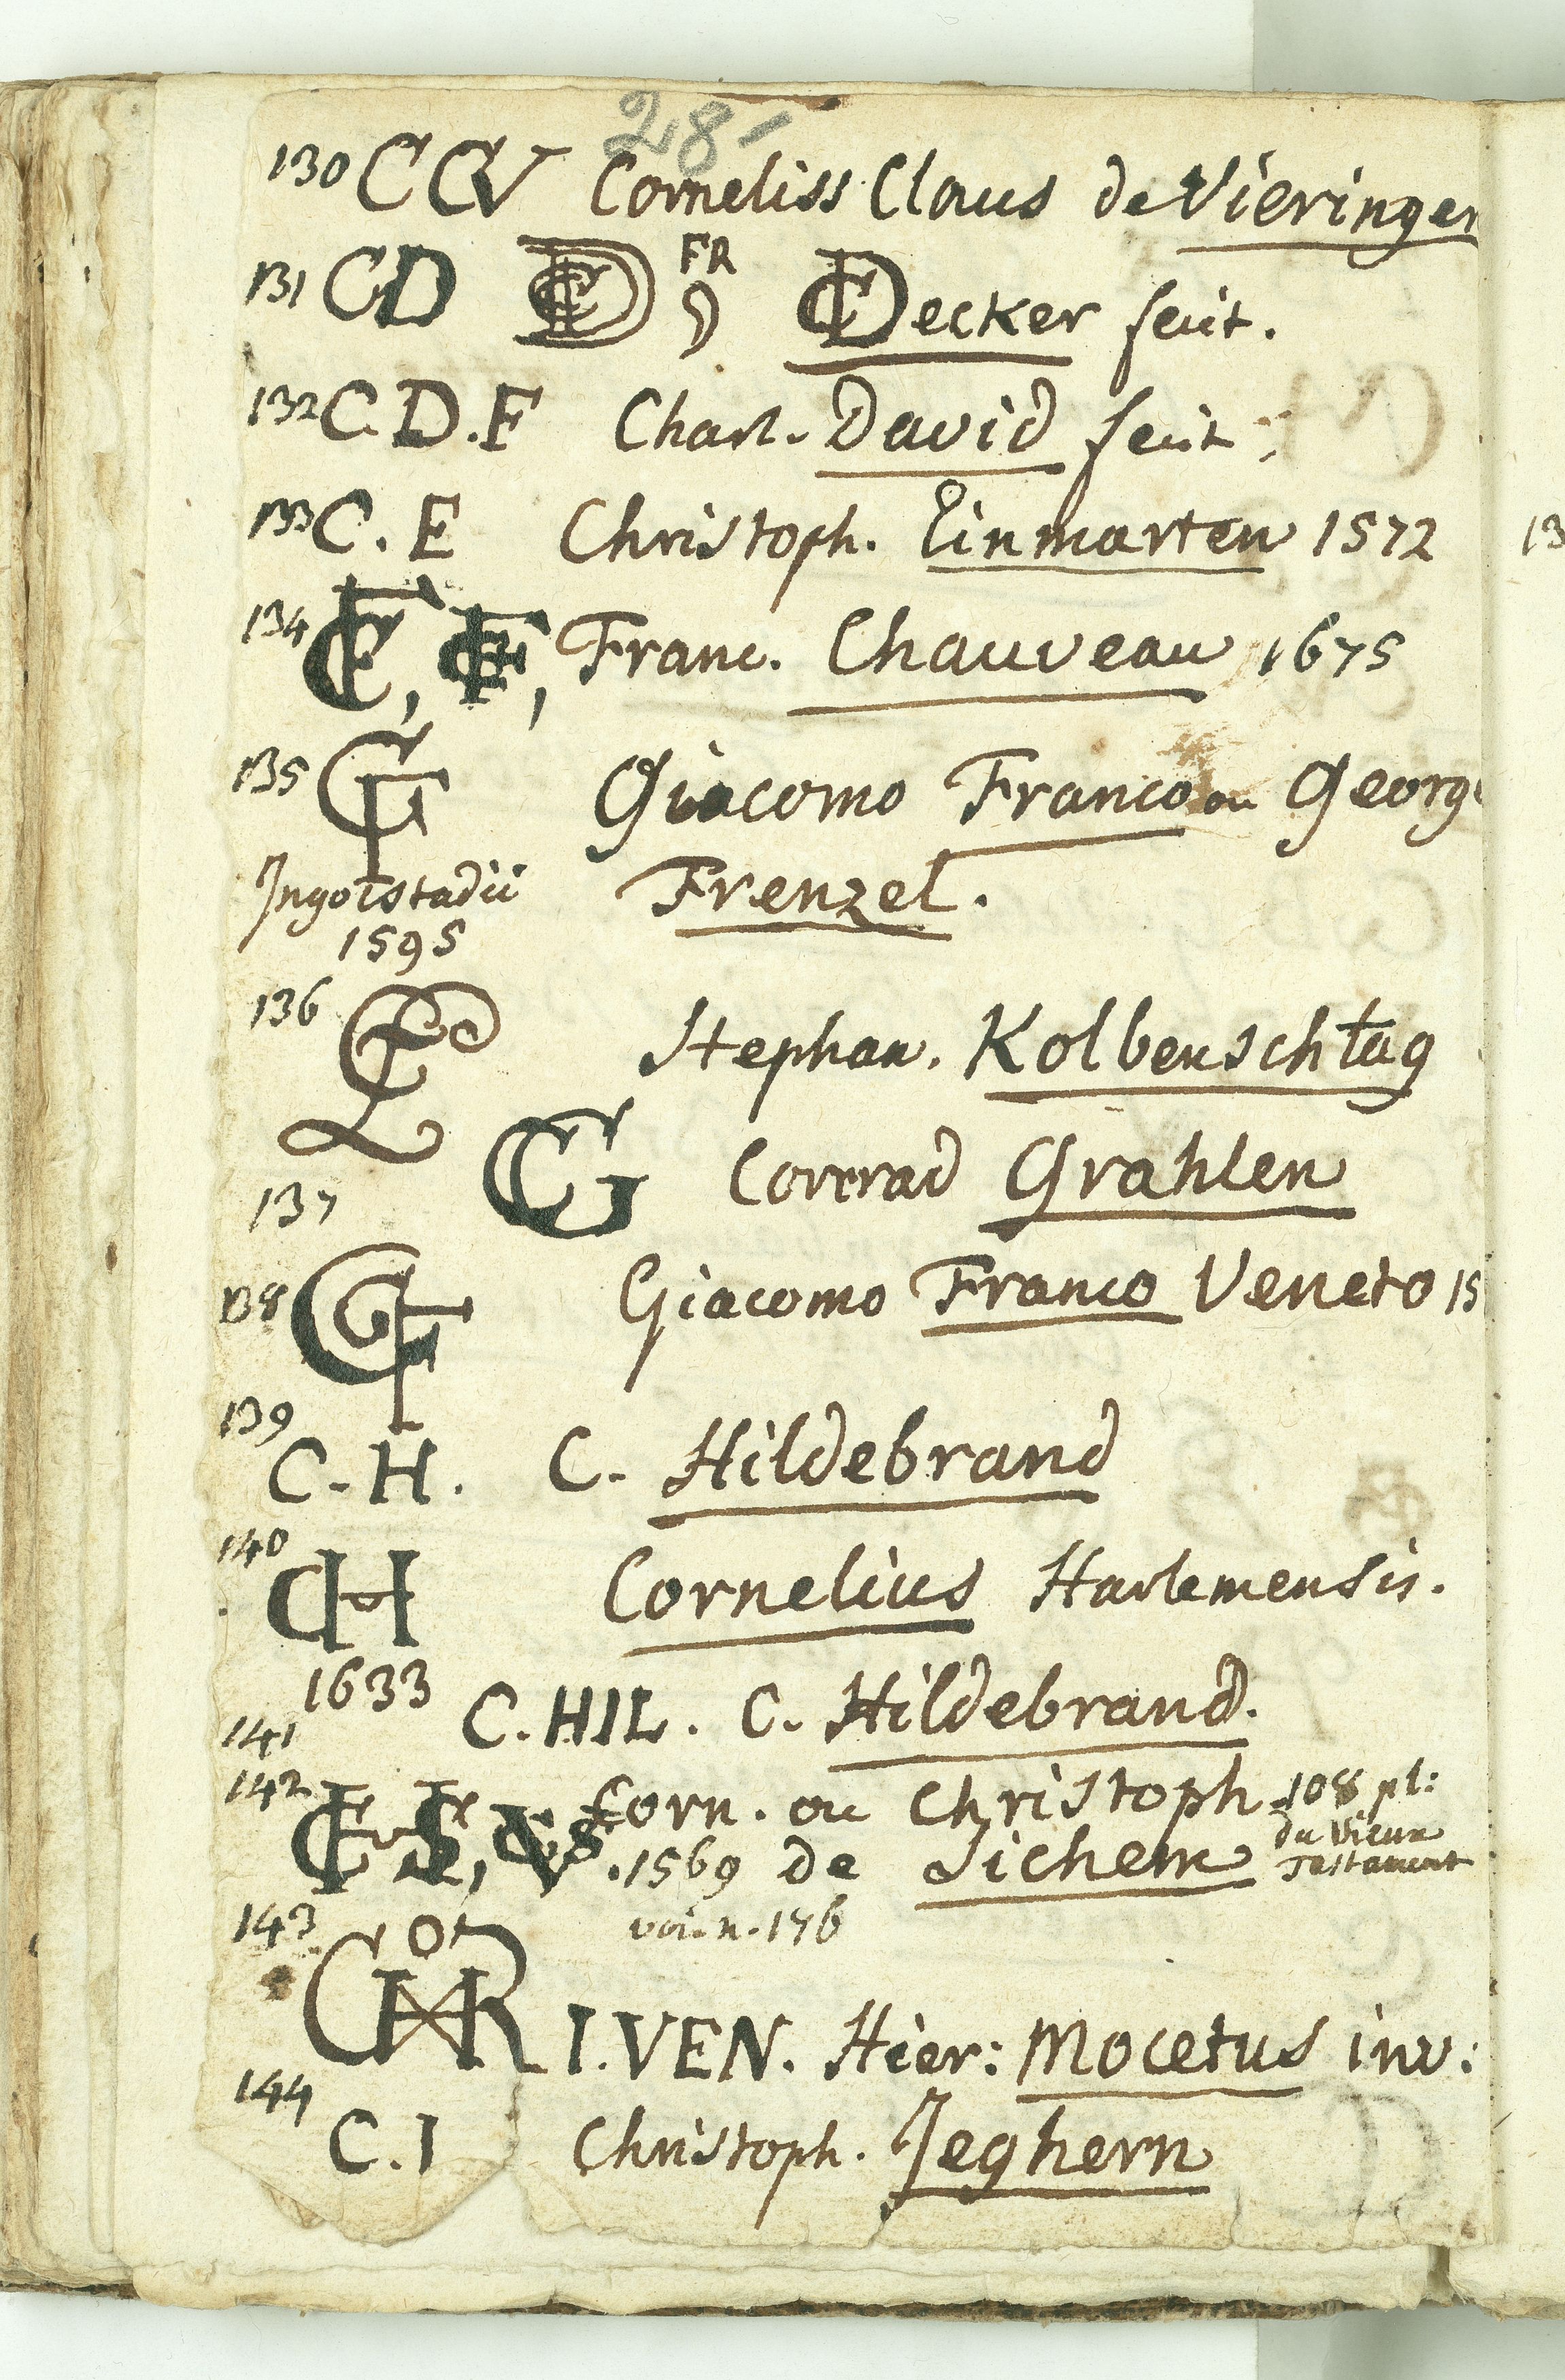 28-
130 CCV Corneliss Claus de Vieringen
131 CD FR CDecker fecit.
132 C.D.F Charl. David fecit.
133 C. E Christoph. Einmarten 1572
134 CF, CF, Franc. Chauveau 1675
135 GF Giacomo Franco ou George
Ingolstadii Frenzel.
1595
136 Stephan. Kolbenschlag
137 CG Conrad Grahlen
138 GF Giacomo Franco Veneto 15
139
C. H. C. Hildebrand
140 CH Cornelius Harlemensis.
1633
141 C. HIL. C. Hildebrand.
142 Corn. ou Christoph 108 pl:
1569 de Sichem du Vieux Testament
143 voi. n. 146
I. VEN. Hier: Mocetus inv:
144
C. I Christoph. Jeghern
13